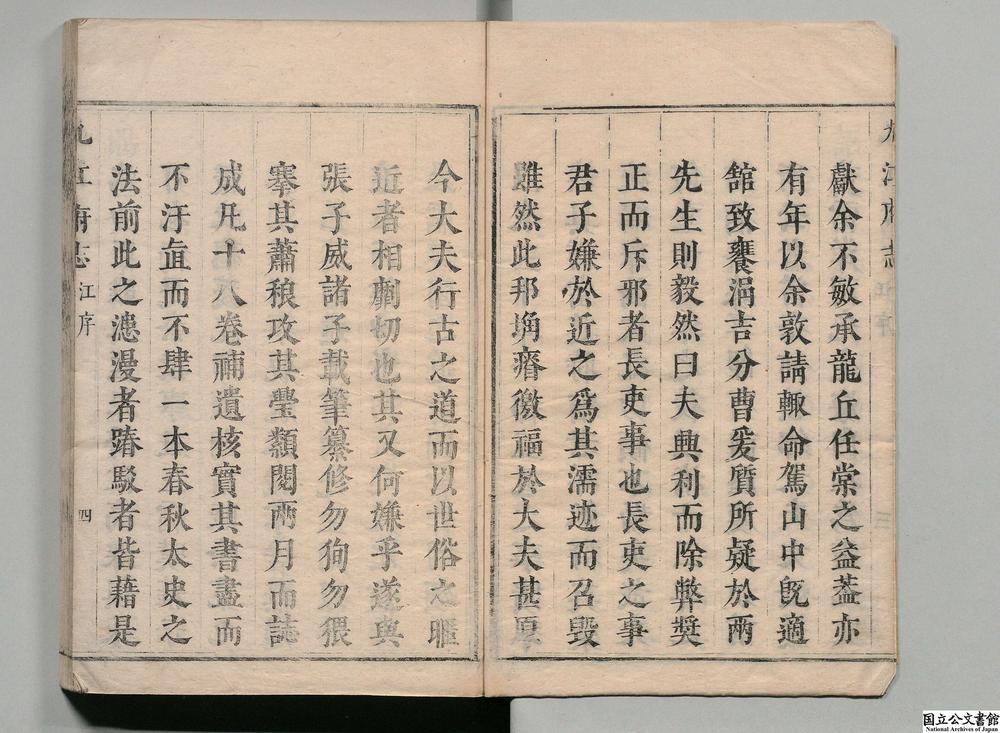 九江府志
三
獻余不敏承龍丘任棠之益葢亦
有年以余敦請輙命駕山中旣適
舘致饔涓吉分曹爰質所疑於兩
先生則毅然曰夫興利而除弊奬
正而斥邪者長吏事也長吏之事
君子嫌於近之爲其濡迹而召毁
雖然此邦埆瘠徼福於大夫甚厚
今大夫行古之道而以世俗之
近者相劘切也其又何嫌乎遂與
張子威諸子載筆纂修勿狥勿猥
搴其蕭稂攻其璺纇閱兩月而誌
成凡十八卷補遺核實其書盡而
不汙直而不肆一本春秋太史之
法前此之漶漫者踳駁者皆藉是
九江府志
江序
四
国立公文書館
National Archives of Japan